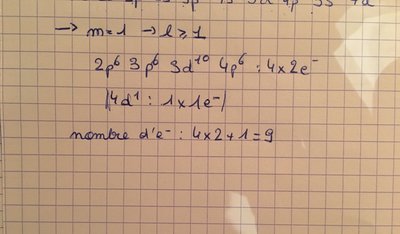 → m=1 → l ≥ 1
2p⁶ 3p⁶ 3d¹⁰ 4p⁶ : 4x2e⁻
|4d¹ : 1x1e⁻|
nombre d'e⁻ : 4x2+1=9